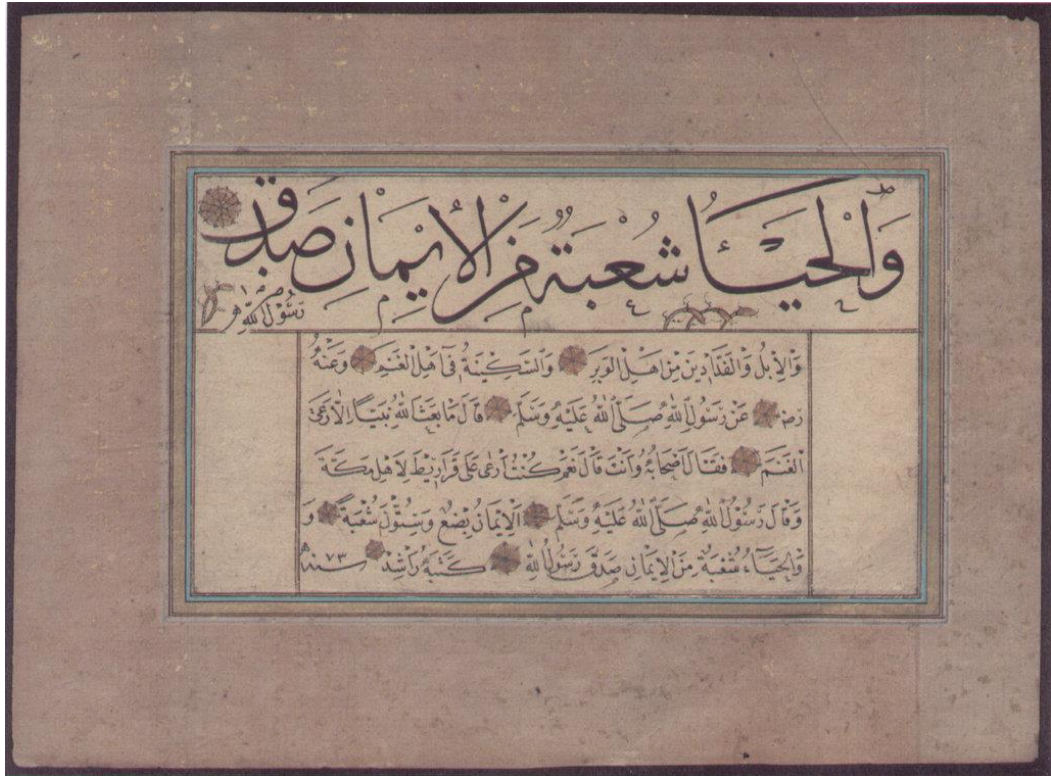 وَالْحَيَاءُ شُعْبَةٌ مِنَ الْإِيمَانِ صَدَقَ
رَسُولُ اللهِ
وَالْإِبِلِ وَالْفَدَّادِينَ مِنْ أَهْلِ الْوَبَرِ وَالسَّكِينَةُ فِي أَهْلِ الْغَنَمِ وَعَنْهُ
رضـ عَنْ رَسُولِ اللهِ صَلَّى اللهُ عَلَيْهِ وَسَلَّمَ قَالَ مَا بَعَثَ اللهُ نَبِيًّا إِلَّا رَعَى
الْغَنَمَ فَقَالَ أَصْحَابُهُ وَأَنْتَ قَالَ نَعَمْ كُنْتُ أَرْعَى عَلَى قَرَارِيطَ لِأَهْلِ مَكَّةَ
وَقَالَ رَسُولُ اللهِ صَلَّى اللهُ عَلَيْهِ وَسَلَّمَ الْإِيمَانُ بِضْعٌ وَسِتُّونَ شُعْبَةً وَ
وَالْحَيَاءُ شُعْبَةٌ مِنَ الْإِيمَانِ صَدَقَ رَسُولُ اللهِ كَتَبَهُ رَاشِد سنة ٧٣